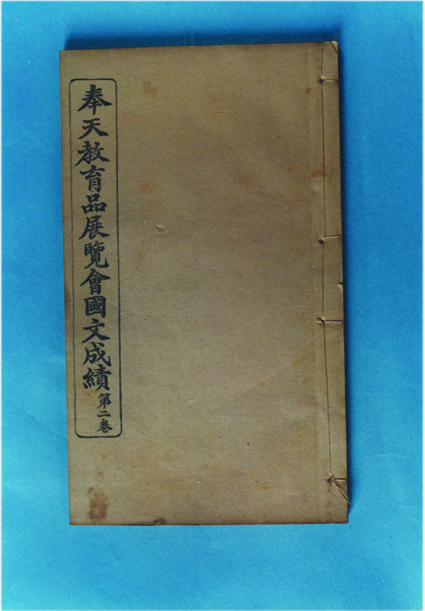 奉天教育品展覽會國文成績第二卷